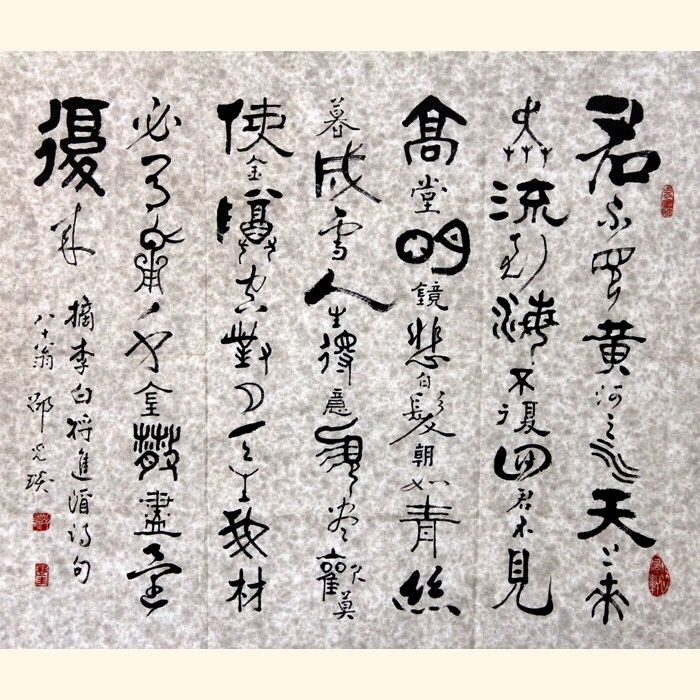 君不見黄河之水天上来
奔流到海不復回君不見
高堂明鏡悲白髮朝如青絲
暮成雪人生得意須尽歡莫
使金樽空對月天生我材
必有用千金散盡還
復来
摘李白将進酒诗句
八十翁邵